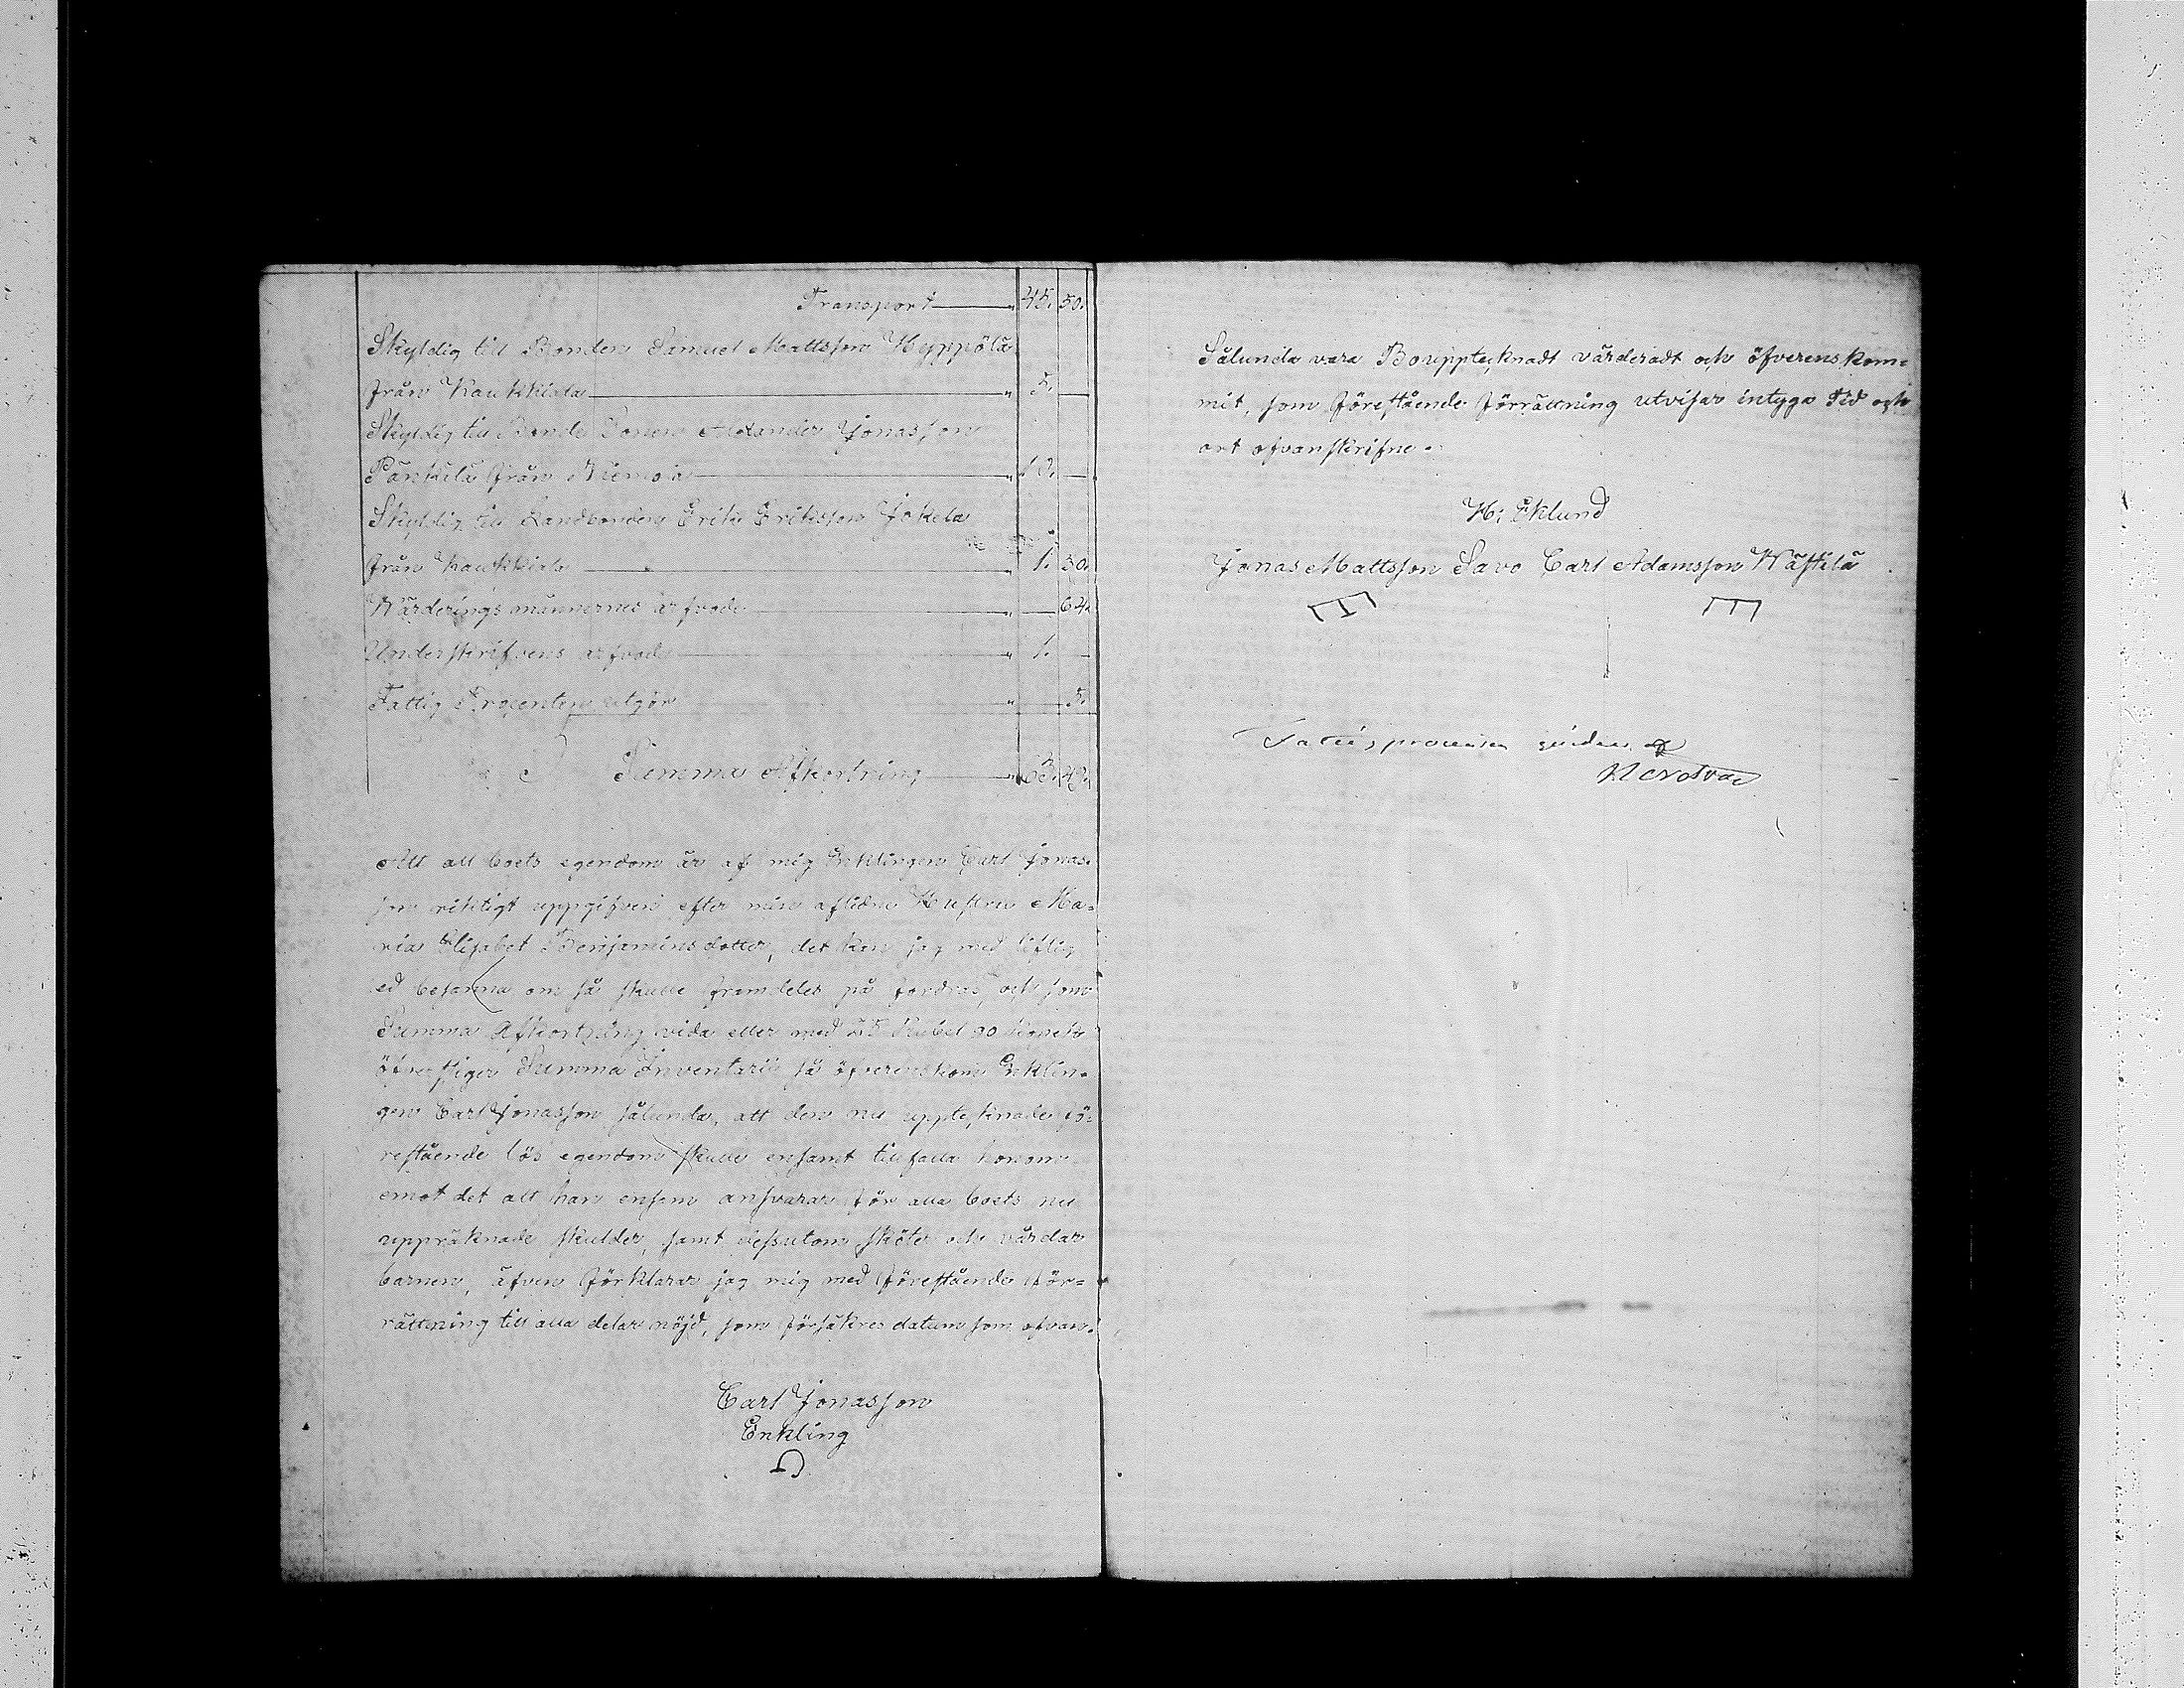 Transport " 45. 50.
Skyldig till Bonden Samuel Mattsson Hyppölä
från Kaukkiala " 5. —
Skyldig till Bonde Sonen Alexander Jonasson
Pänkälä från Niemois " 10. —
Skyldig till Landbonden Erik Eriksson Jokela
från Kaukkiala " 1. 30.
Wärderings männernes arfvode " — 64.
Underskrifvens arfvode " 1. —
Fattig Procenten utgör " — 5.
Summa Afkortning " 63. 49.
Att all boets egendom är af mig Enklingen Carl Jonas-
son riktigt uppgifven efter min aflidna Hustru Ma-
ria Elisabet Benjaminsdotter, det kan jag med liflig
ed besanna om så skulle framdeles på fordras, och som
Summa Afkortning vida eller med 25 Rubel 90 Kopek
öfverstiger Summa Inventarii så öfverenskom Enklin-
gen Carl Jonasson sålunda, att den nu upptecknade fö-
restående lös egendom skulle ensamt tillfalla honom
emot det att han ensam ansvarar för alla boets nu
uppräknade skulder, samt dessutom sköter och vårdar
barnen, äfven förklarar jag mig med förestående för-
rättning till alla delar nöjd, som försäkres datum som ofvan.
Carl Jonasson
Enkling
Sålunda vara Boupptecknadt värderadt och öfverenskom-
mit, som förestående förrättning utvisar intyga Tid och
ort ofvanskrifne.
H: Eklund
Jonas Mattsson Savo Carl Adamsson Wästilä
Fattigprocenten